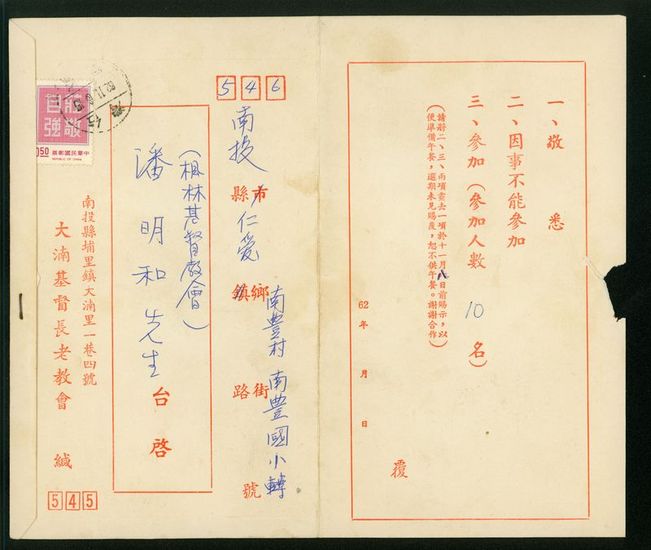 一、敬悉
二、因事不能參加
三、參加（參加人數 10 名）
（請將二、三、兩項賣去一項於十一月八日前賜示，以
便準備午餐，逾期未見賜覆，恕不供午餐。謝謝合作）
62年 月 日
覆
546
南投縣市仁愛鎮鄉南豐村路街南豐國小轉號
（楓林基督教會）
潘明和先生台啓
南投縣埔里鎮大湳里一巷四號
大湳基督長老教會 緘
545
莊敬自強
0.50
中華民國郵票
REPUBLIC OF CHINA
62.11.6